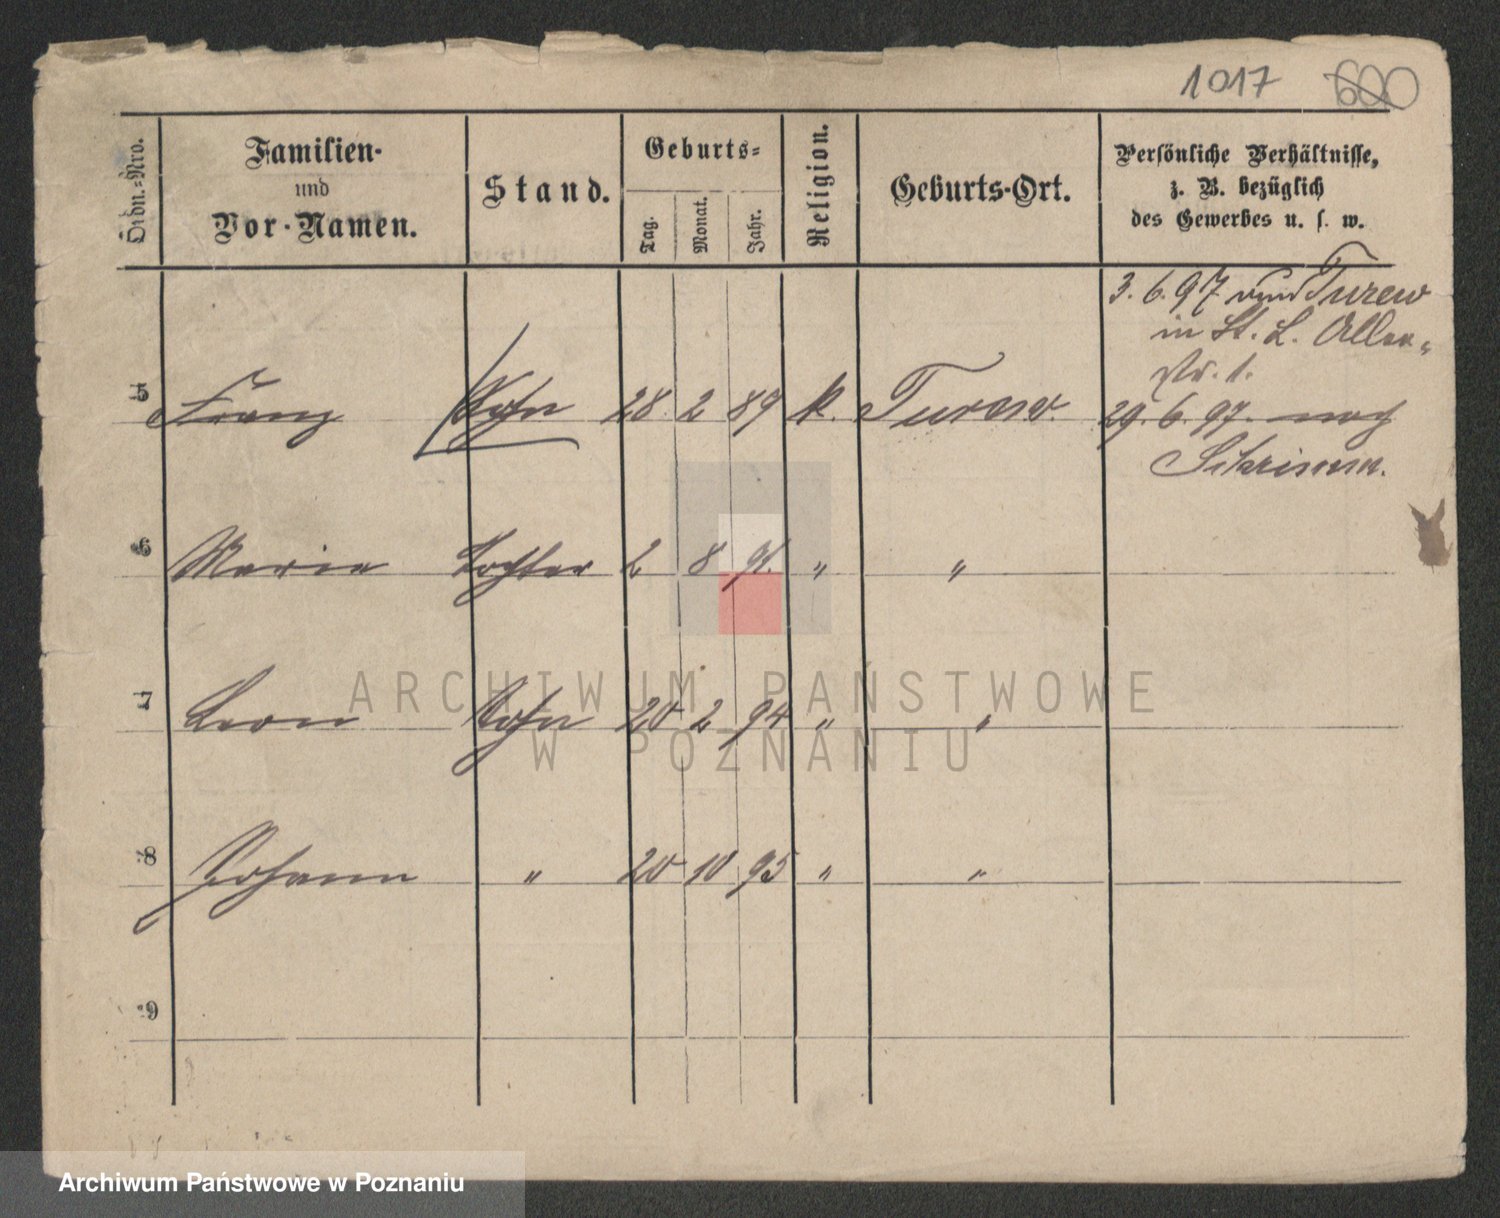 1017 600
Ordn.-Nro.
Familien-
und
Vor-Namen.
Stand.
Geburts-
Tag.
Monat.
Jahr.
Religion.
Geburts-Ort.
Persönliche Verhältnisse,
z. B. bezüglich
des Gewerbes u. s. w.
3. 6. 97 von Turew
in St. L.
str. 1.
5 Franz Sohn 28 2 89 k. Turew. 29. 6. 97. nach
6 Maria Tochter 2 8 91. " "
7 Leon Sohn 20 2 94 " "
8 Johann " 20 10 95 " "
9
ARCHIWUM PAŃSTWOWE
W POZNANIU
Archiwum Państwowe w Poznaniu